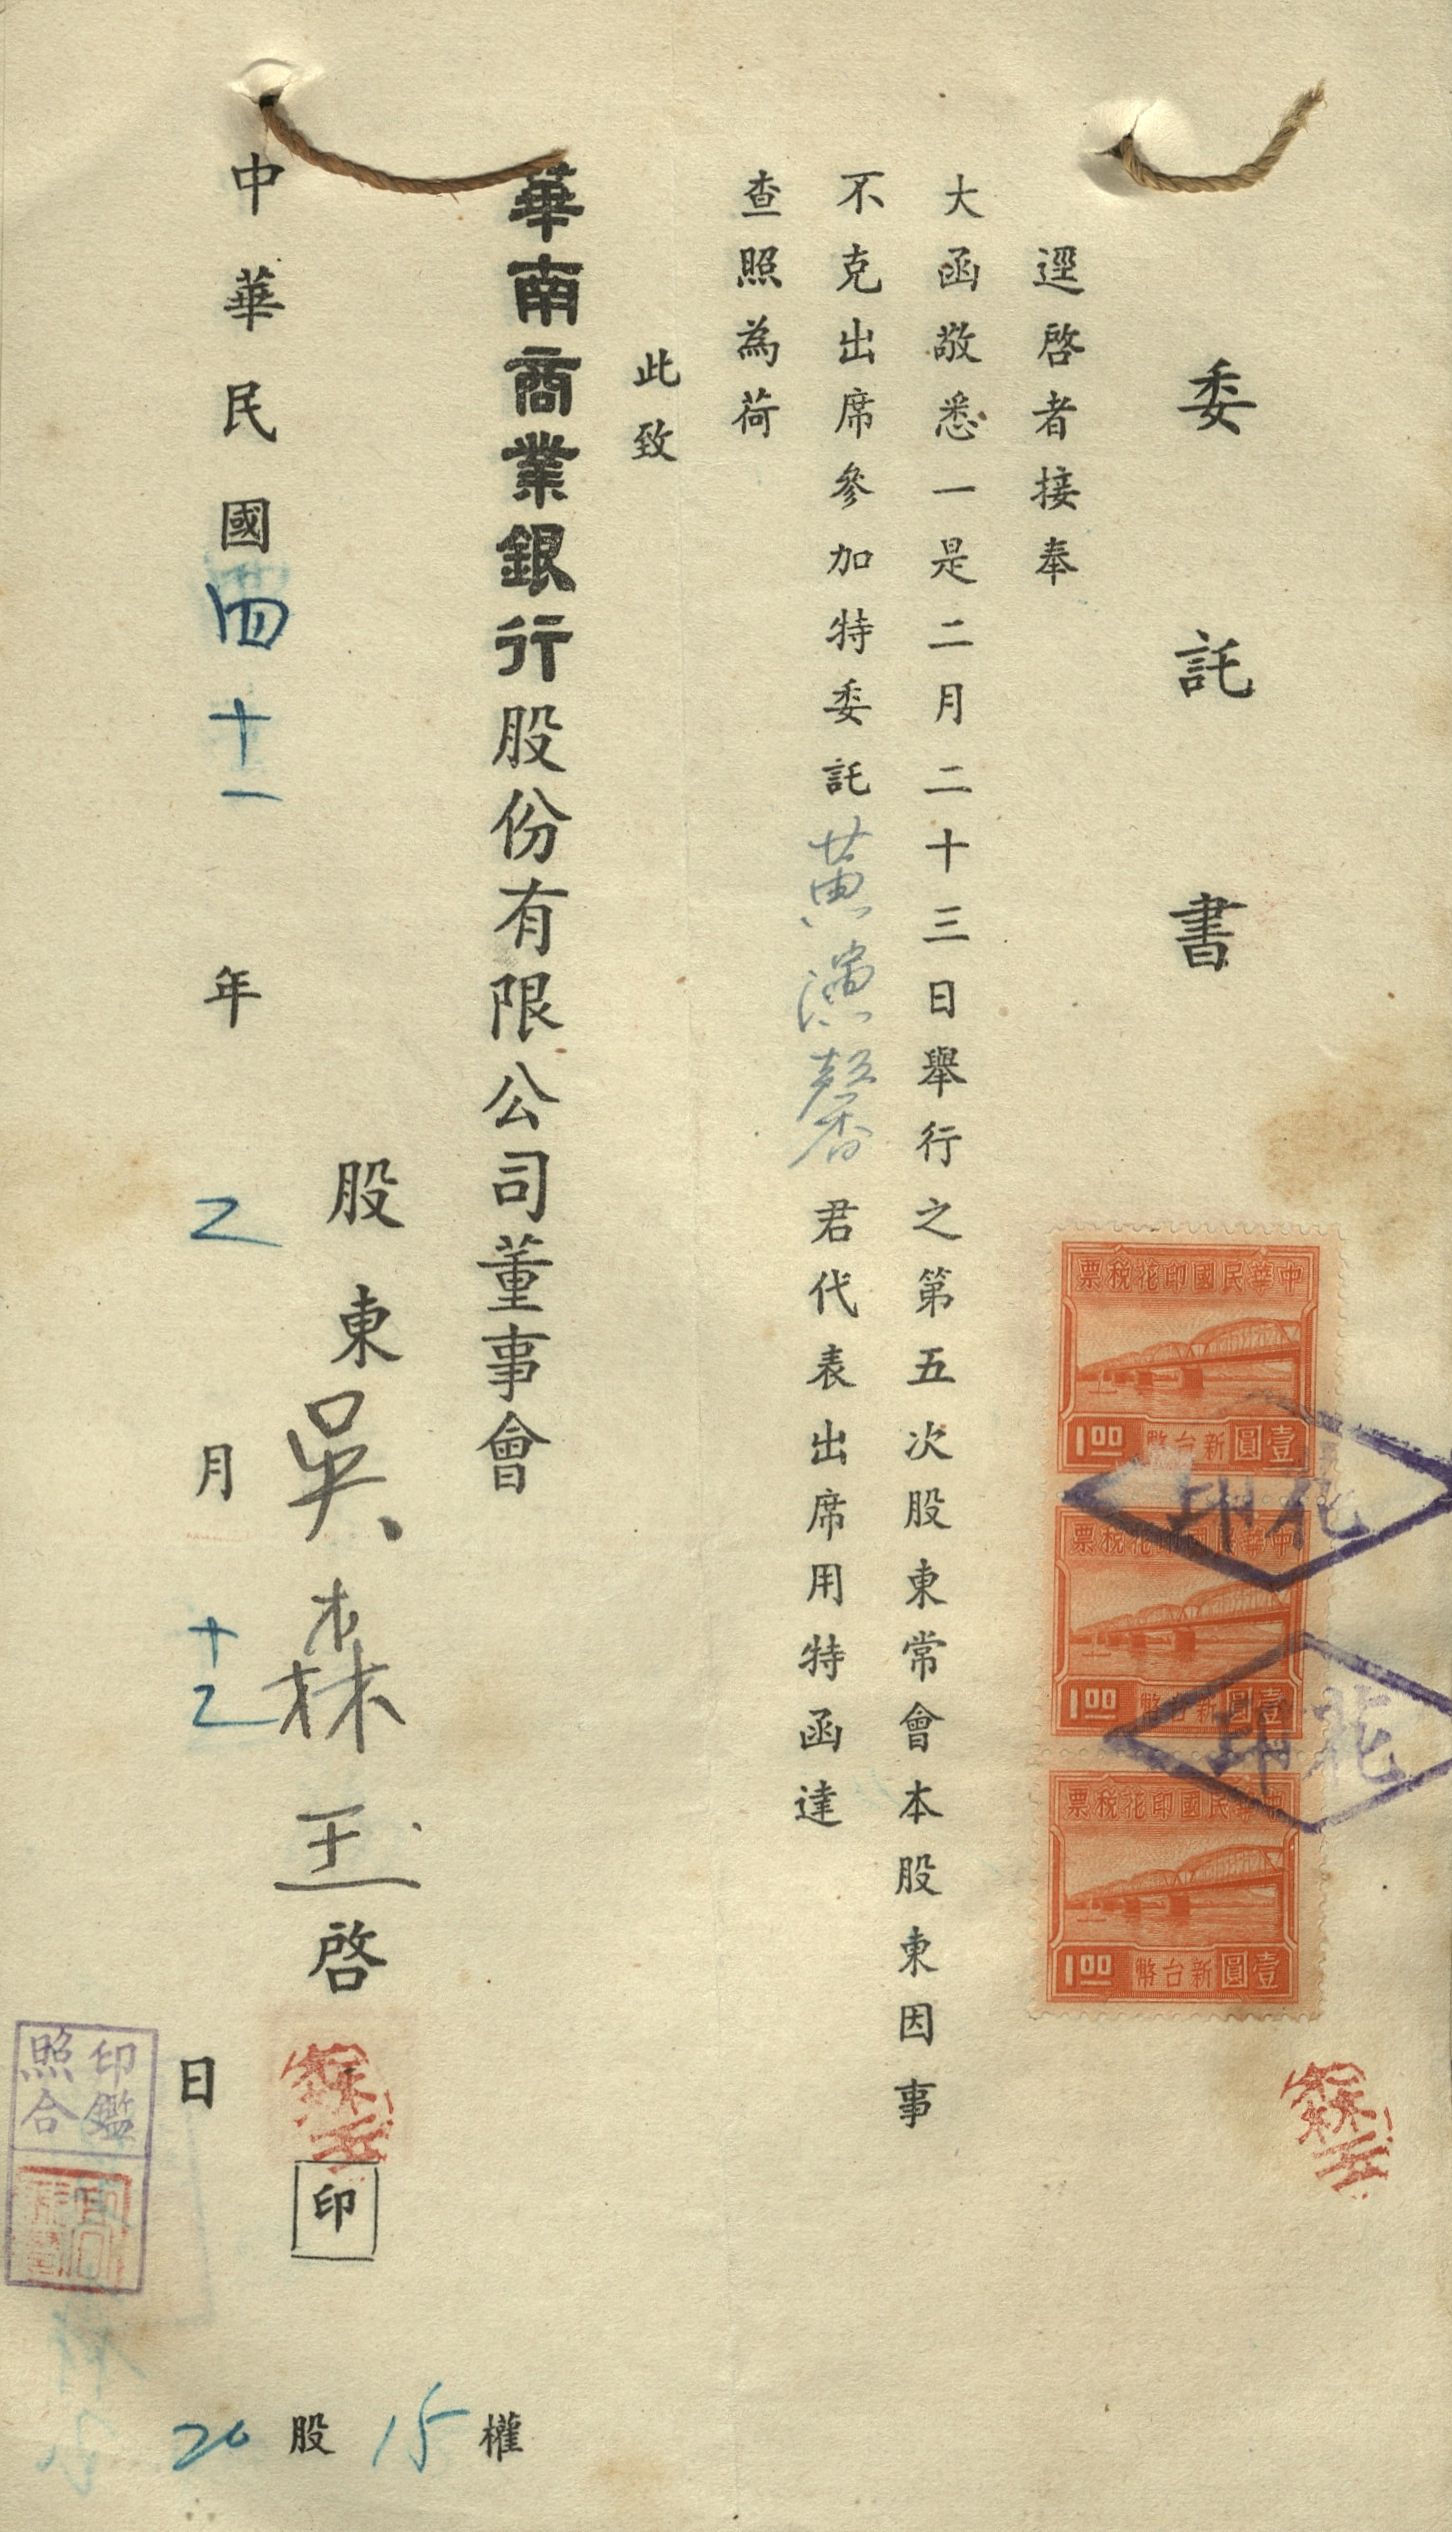 委託書
逕啓者接奉
大函敬悉一是二月二十三日舉行之第五次股東常會本股東因事
不克出席參加特委託黃演馨君代表出席用特函達
查照為荷
此致
華南商業銀行股份有限公司董事會
股東吳森王啓
印
中華民國四十一年乙月十乙日
20股15權
中華民國印花稅票
1.00 新台幣壹圓
中華民國印花稅票
1.00 新台幣壹圓
中華民國印花稅票
1.00 新台幣壹圓
印花
印花
印鑑
照合